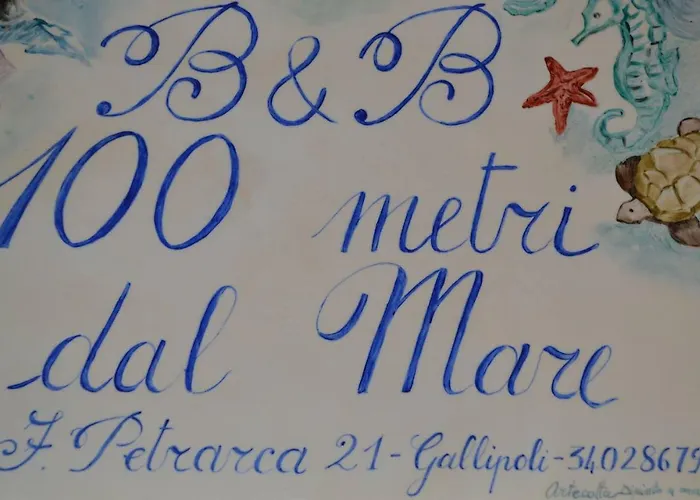 B & B
100 metri
dal Mare
F. Petrarca 21-Gallipoli-34028679